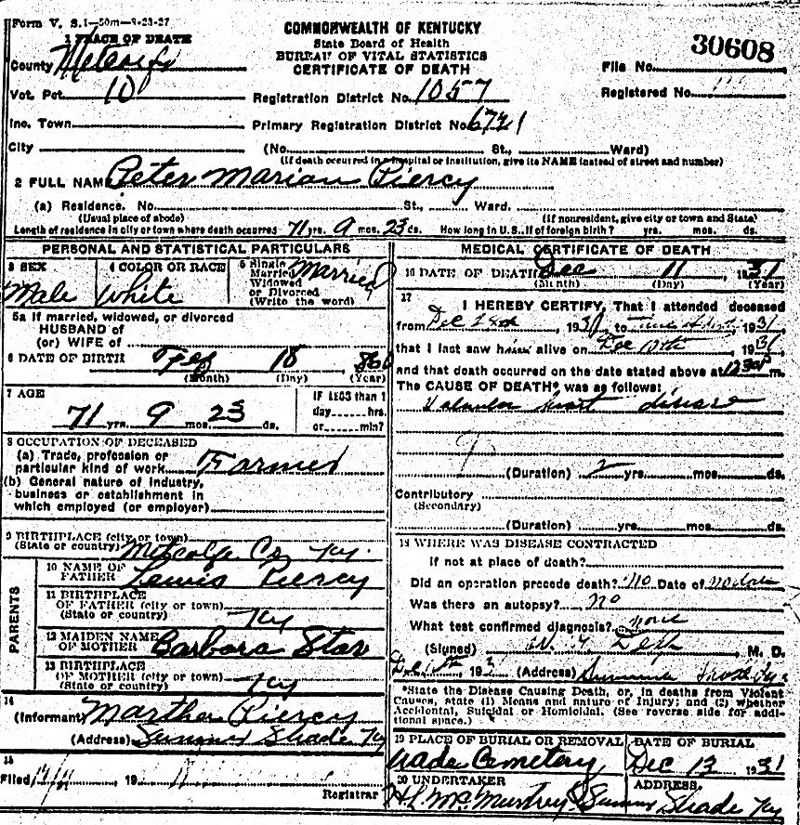 Form V. S. 1-50m-9-23-27
COMMONWEALTH OF KENTUCKY
State Board of Health
BUREAU OF VITAL STATISTICS
CERTIFICATE OF DEATH
30608
File No.
Registered No.
1 PLACE OF DEATH
County Metcalfe
Vot. Pct. 10 Registration District No. 1057
Inc. Town Primary Registration District No. 6721
City (No. St., Ward)
(If death occurred in hospital or institution, give its NAME instead of street and number)
2 FULL NAME Peter Marian Piercy
(a) Residence. No. St., Ward.
(Usual place of abode) (If nonresident, give city or town and State)
Length of residence in city or town where death occurred 71 yrs. 9 mos. 23 ds. How long in U.S., if of foreign birth? yrs. mos. ds.
PERSONAL AND STATISTICAL PARTICULARS
3 SEX Male
4 COLOR OR RACE White
5 Single Married Widowed or Divorced (Write the word) Married
5a If married, widowed, or divorced
HUSBAND of
(or) WIFE of
6 DATE OF BIRTH 18
(Month) (Day) (Year)
7 AGE
71 yrs. 9 mos. 23 ds.
IF LESS than 1
day hrs.
or min?
8 OCCUPATION OF DECEASED
(a) Trade, profession or
particular kind of work Farmer
(b) General nature of industry,
business or establishment in
which employed (or employer)
9 BIRTHPLACE (city or town)
(State or country) Metcalfe Co Ky.
PARENTS
10 NAME OF
FATHER Lewis Piercy
11 BIRTHPLACE
OF FATHER (city or town)
(State or country) Ky
12 MAIDEN NAME
OF MOTHER Barbara Star
13 BIRTHPLACE
OF MOTHER (city or town)
(State or country) Ky
14
(Informant) Martha Piercy
(Address) Summer Shade Ky
15
Filed 19
Registrar
MEDICAL CERTIFICATE OF DEATH
16 DATE OF DEATH Dec 11 1931
(Month) (Day) (Year)
17
I HEREBY CERTIFY, That I attended deceased
from Dec 1931 to 1931
that I last saw him alive on Dec 1931
and that death occurred on the date stated above at m.
The CAUSE OF DEATH* was as follows:
Valvular heart disease
(Duration) 2 yrs. mos. ds.
Contributory
(Secondary)
(Duration) yrs. mos. ds.
18 WHERE WAS DISEASE CONTRACTED
If not at place of death?
Did an operation precede death? No Date of
Was there an autopsy? no
What test confirmed diagnosis? none
(Signed) M. D.
Dec 193 (Address) Summer
*State the Disease Causing Death, or, in deaths from Violent
Causes, state (1) Means and nature of Injury; and (2) whether
Accidental, Suicidal or Homicidal. (See reverse side for addi-
tional space.)
19 PLACE OF BURIAL OR REMOVAL
Cemetery
DATE OF BURIAL
Dec 13 1931
20 UNDERTAKER
H L McMurtrey
ADDRESS.
Summer Shade Ky